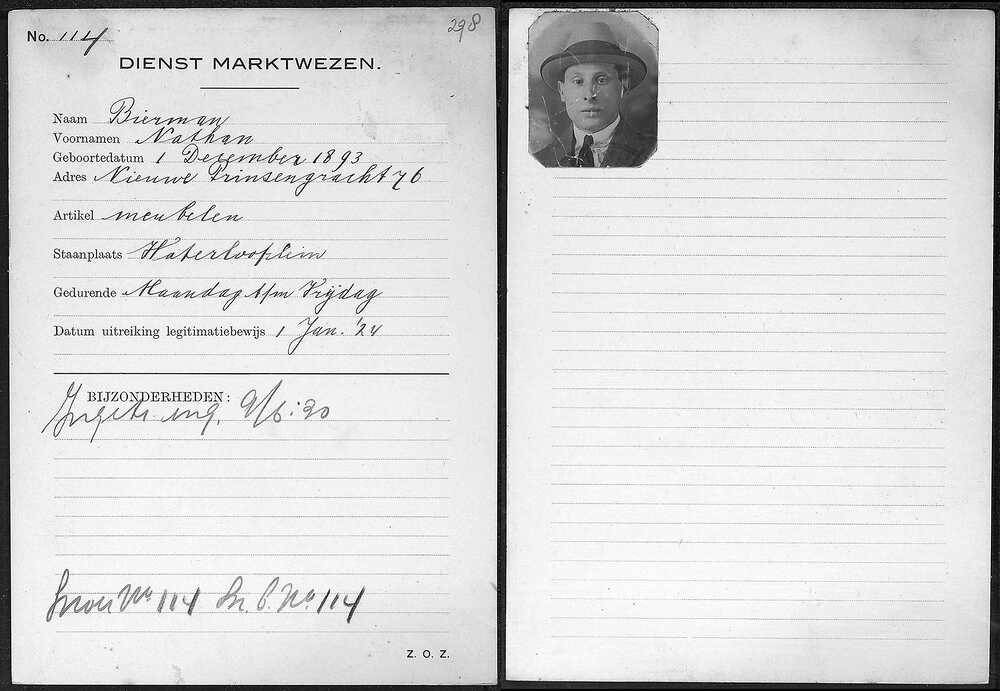 No. 114
298
DIENST MARKTWEZEN.
Naam Bierman
Voornamen Nathan
Geboortedatum 1 December 1893
Adres Nieuwe Prinsengracht 76
Artikel meubelen
Staanplaats Waterlooplein
Gedurende Maandag t/m Vrijdag
Datum uitreiking legitimatiebewijs 1 Jan. '24
BIJZONDERHEDEN:
Ingetr. ing. 9/6:30
No 114 No 114
Z. O. Z.